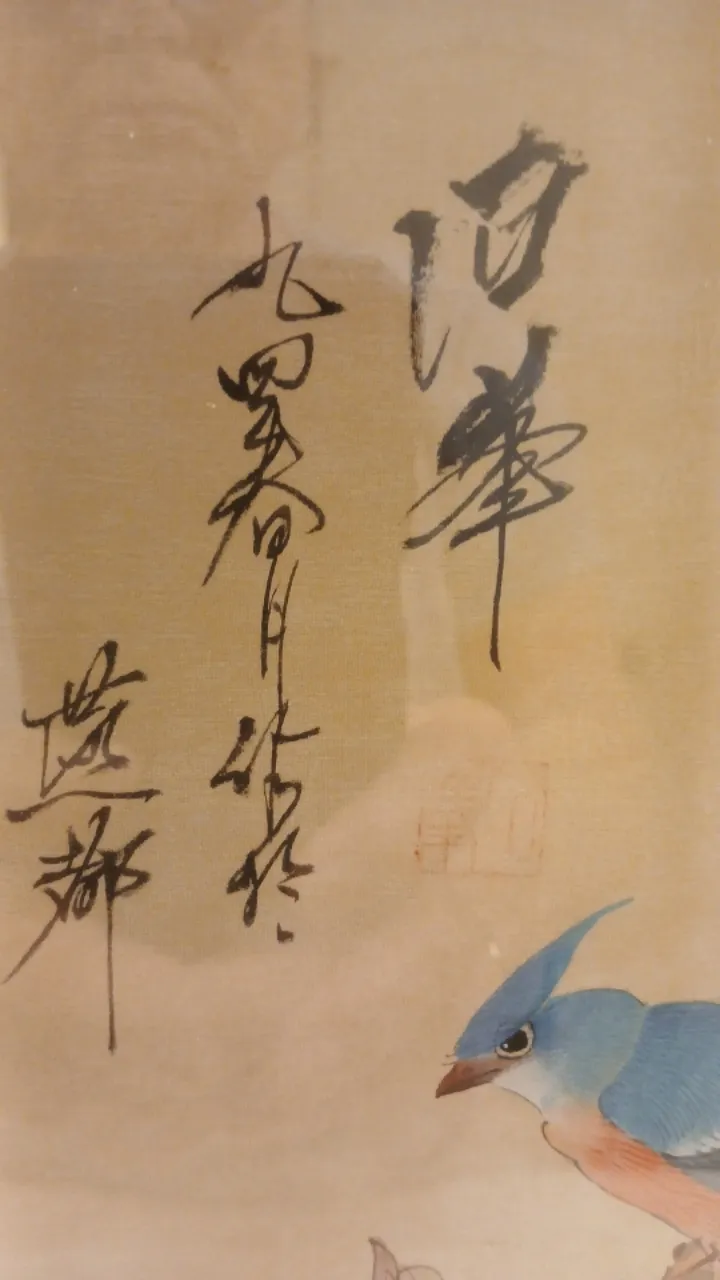 華
九四年春月作於
燕都